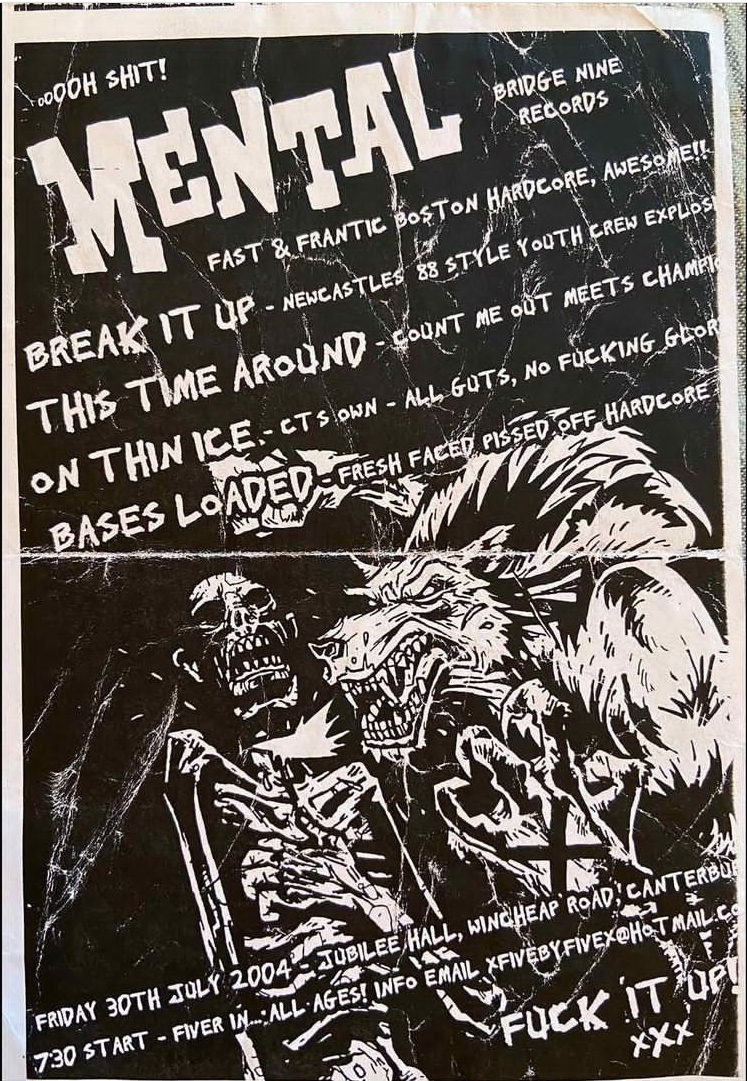 ...OOH SHIT!
MENTAL
BRIDGE NINE
RECORDS
FAST & FRANTIC BOSTON HARDCORE, AWESOME!!
BREAK IT UP - NEWCASTLES 88 STYLE YOUTH CREW EXPLOS
THIS TIME AROUND - COUNT ME OUT MEETS CHAMPI
ON THIN ICE - CT'S OWN - ALL GUTS, NO FUCKING GLOR
BASES LOADED - FRESH FACED PISSED OFF HARDCORE
FRIDAY 30TH JULY 2004 - JUBILEE HALL, WINCHEAP ROAD, CANTERBU
7:30 START - FIVER IN...ALL AGES! INFO EMAIL XFIVEBYFIVEX@HOTMAIL.CO
FUCK IT UP!
XXX